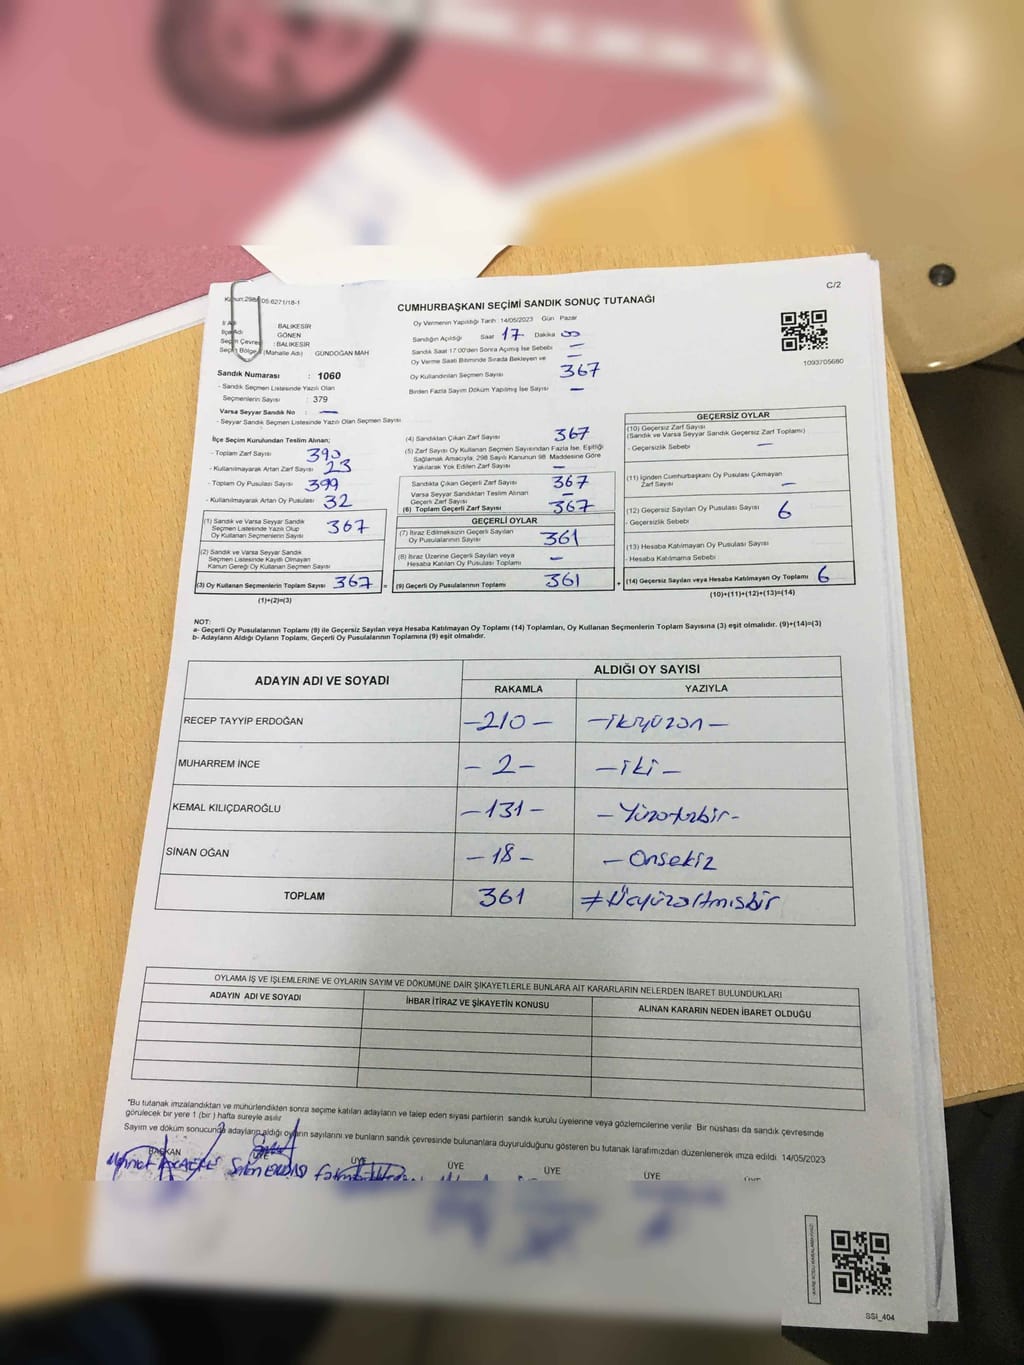 C/2
CUMHURBAŞKANI SEÇİMİ SANDIK SONUÇ TUTANAĞI
İl Adı BALIKESİR
İlçe Adı GÖNEN
Seçim Çevresi : BALIKESİR
Seçim Bölgesi (Mahalle Adı) GÜNDOĞAN MAH
Sandık Numarası : 1060
- Sandık Seçmen Listesinde Yazılı Olan
Seçmenlerin Sayısı : 379
Varsa Seyyar Sandık No : —
- Seyyar Sandık Seçmen Listesinde Yazılı Olan Seçmen Sayısı
Oy Vermenin Yapıldığı Tarih : 14/05/2023 Gün Pazar
Sandığın Açıldığı Saat 17 Dakika 00
Sandık Saat 17:00'den Sonra Açılmış İse Sebebi —
Oy Verme Saati Bitiminde Sırada Bekleyen ve —
Oy Kullandırılan Seçmen Sayısı 367
Birden Fazla Sayım Döküm Yapılmış İse Sayısı —
1093705680
İlçe Seçim Kurulundan Teslim Alınan;
- Toplam Zarf Sayısı 390
- Kullanılmayarak Artan Zarf Sayısı 23
- Toplam Oy Pusulası Sayısı 399
- Kullanılmayarak Artan Oy Pusulası 32
(1) Sandık ve Varsa Seyyar Sandık
Seçmen Listesinde Yazılı Olup
Oy Kullanan Seçmenlerin Sayısı 367
(2) Sandık ve Varsa Seyyar Sandık
Seçmen Listesinde Kayıtlı Olmayan
Kanun Gereği Oy Kullanan Seçmen Sayısı
(3) Oy Kullanan Seçmenlerin Toplam Sayısı 367 =
(1)+(2)=(3)
(4) Sandıktan Çıkan Zarf Sayısı 367
(5) Zarf Sayısı Oy Kullanan Seçmen Sayısından Fazla İse, Eşitliği
Sağlamak Amacıyla; 298 Sayılı Kanunun 98. Maddesine Göre
Yakılarak Yok Edilen Zarf Sayısı —
Sandıkta Çıkan Geçerli Zarf Sayısı 367
Varsa Seyyar Sandıktan Teslim Alınan
Geçerli Zarf Sayısı —
(6) Toplam Geçerli Zarf Sayısı 367
GEÇERLİ OYLAR
(7) İtiraz Edilmeksizin Geçerli Sayılan
Oy Pusulalarının Sayısı 361
(8) İtiraz Üzerine Geçerli Sayılan veya
Hesaba Katılan Oy Pusulası Toplamı —
(9) Geçerli Oy Pusulalarının Toplamı 361 +
GEÇERSİZ OYLAR
(10) Geçersiz Zarf Sayısı
(Sandık ve Varsa Seyyar Sandık Geçersiz Zarf Toplamı)
- Geçersizlik Sebebi —
(11) İçinden Cumhurbaşkanı Oy Pusulası Çıkmayan
Zarf Sayısı —
(12) Geçersiz Sayılan Oy Pusulası Sayısı 6
- Geçersizlik Sebebi
(13) Hesaba Katılmayan Oy Pusulası Sayısı
- Hesaba Katılmama Sebebi
(14) Geçersiz Sayılan veya Hesaba Katılmayan Oy Toplamı 6
(10)+(11)+(12)+(13)=(14)
NOT:
a- Geçerli Oy Pusulalarının Toplamı (9) ile Geçersiz Sayılan veya Hesaba Katılmayan Oy Toplamı (14) Toplamları, Oy Kullanan Seçmenlerin Toplam Sayısına (3) eşit olmalıdır. (9)+(14)=(3)
b- Adayların Aldığı Oyların Toplamı, Geçerli Oy Pusulalarının Toplamına (9) eşit olmalıdır.
ADAYIN ADI VE SOYADI ALDIĞI OY SAYISI
RAKAMLA YAZIYLA
RECEP TAYYİP ERDOĞAN –210– –ikiyüzon–
MUHARREM İNCE –2– –iki–
KEMAL KILIÇDAROĞLU –131– –Yüzotuzbir–
SİNAN OĞAN –18– –Onsekiz
TOPLAM 361 #Üçyüzaltmışbir
OYLAMA İŞ VE İŞLEMLERİNE VE OYLARIN SAYIM VE DÖKÜMÜNE DAİR ŞİKAYETLERLE BUNLARA AİT KARARLARIN NELERDEN İBARET BULUNDUKLARI
ADAYIN ADI VE SOYADI İHBAR İTİRAZ VE ŞİKAYETİN KONUSU ALINAN KARARIN NEDEN İBARET OLDUĞU
*Bu tutanak imzalandıktan ve mühürlendikten sonra seçime katılan adayların ve talep eden siyasi partilerin sandık kurulu üyelerine veya gözlemcilerine verilir. Bir nüshası da sandık çevresinde
görülecek bir yere 1 (bir ) hafta süreyle asılır
Sayım ve döküm sonucunda adayların aldığı oyların sayılarını ve bunların sandık çevresinde bulunanlara duyurulduğunu gösteren bu tutanak tarafımızdan düzenlenerek imza edildi. 14/05/2023
BAŞKAN ÜYE ÜYE ÜYE ÜYE ÜYE
SSİ_404